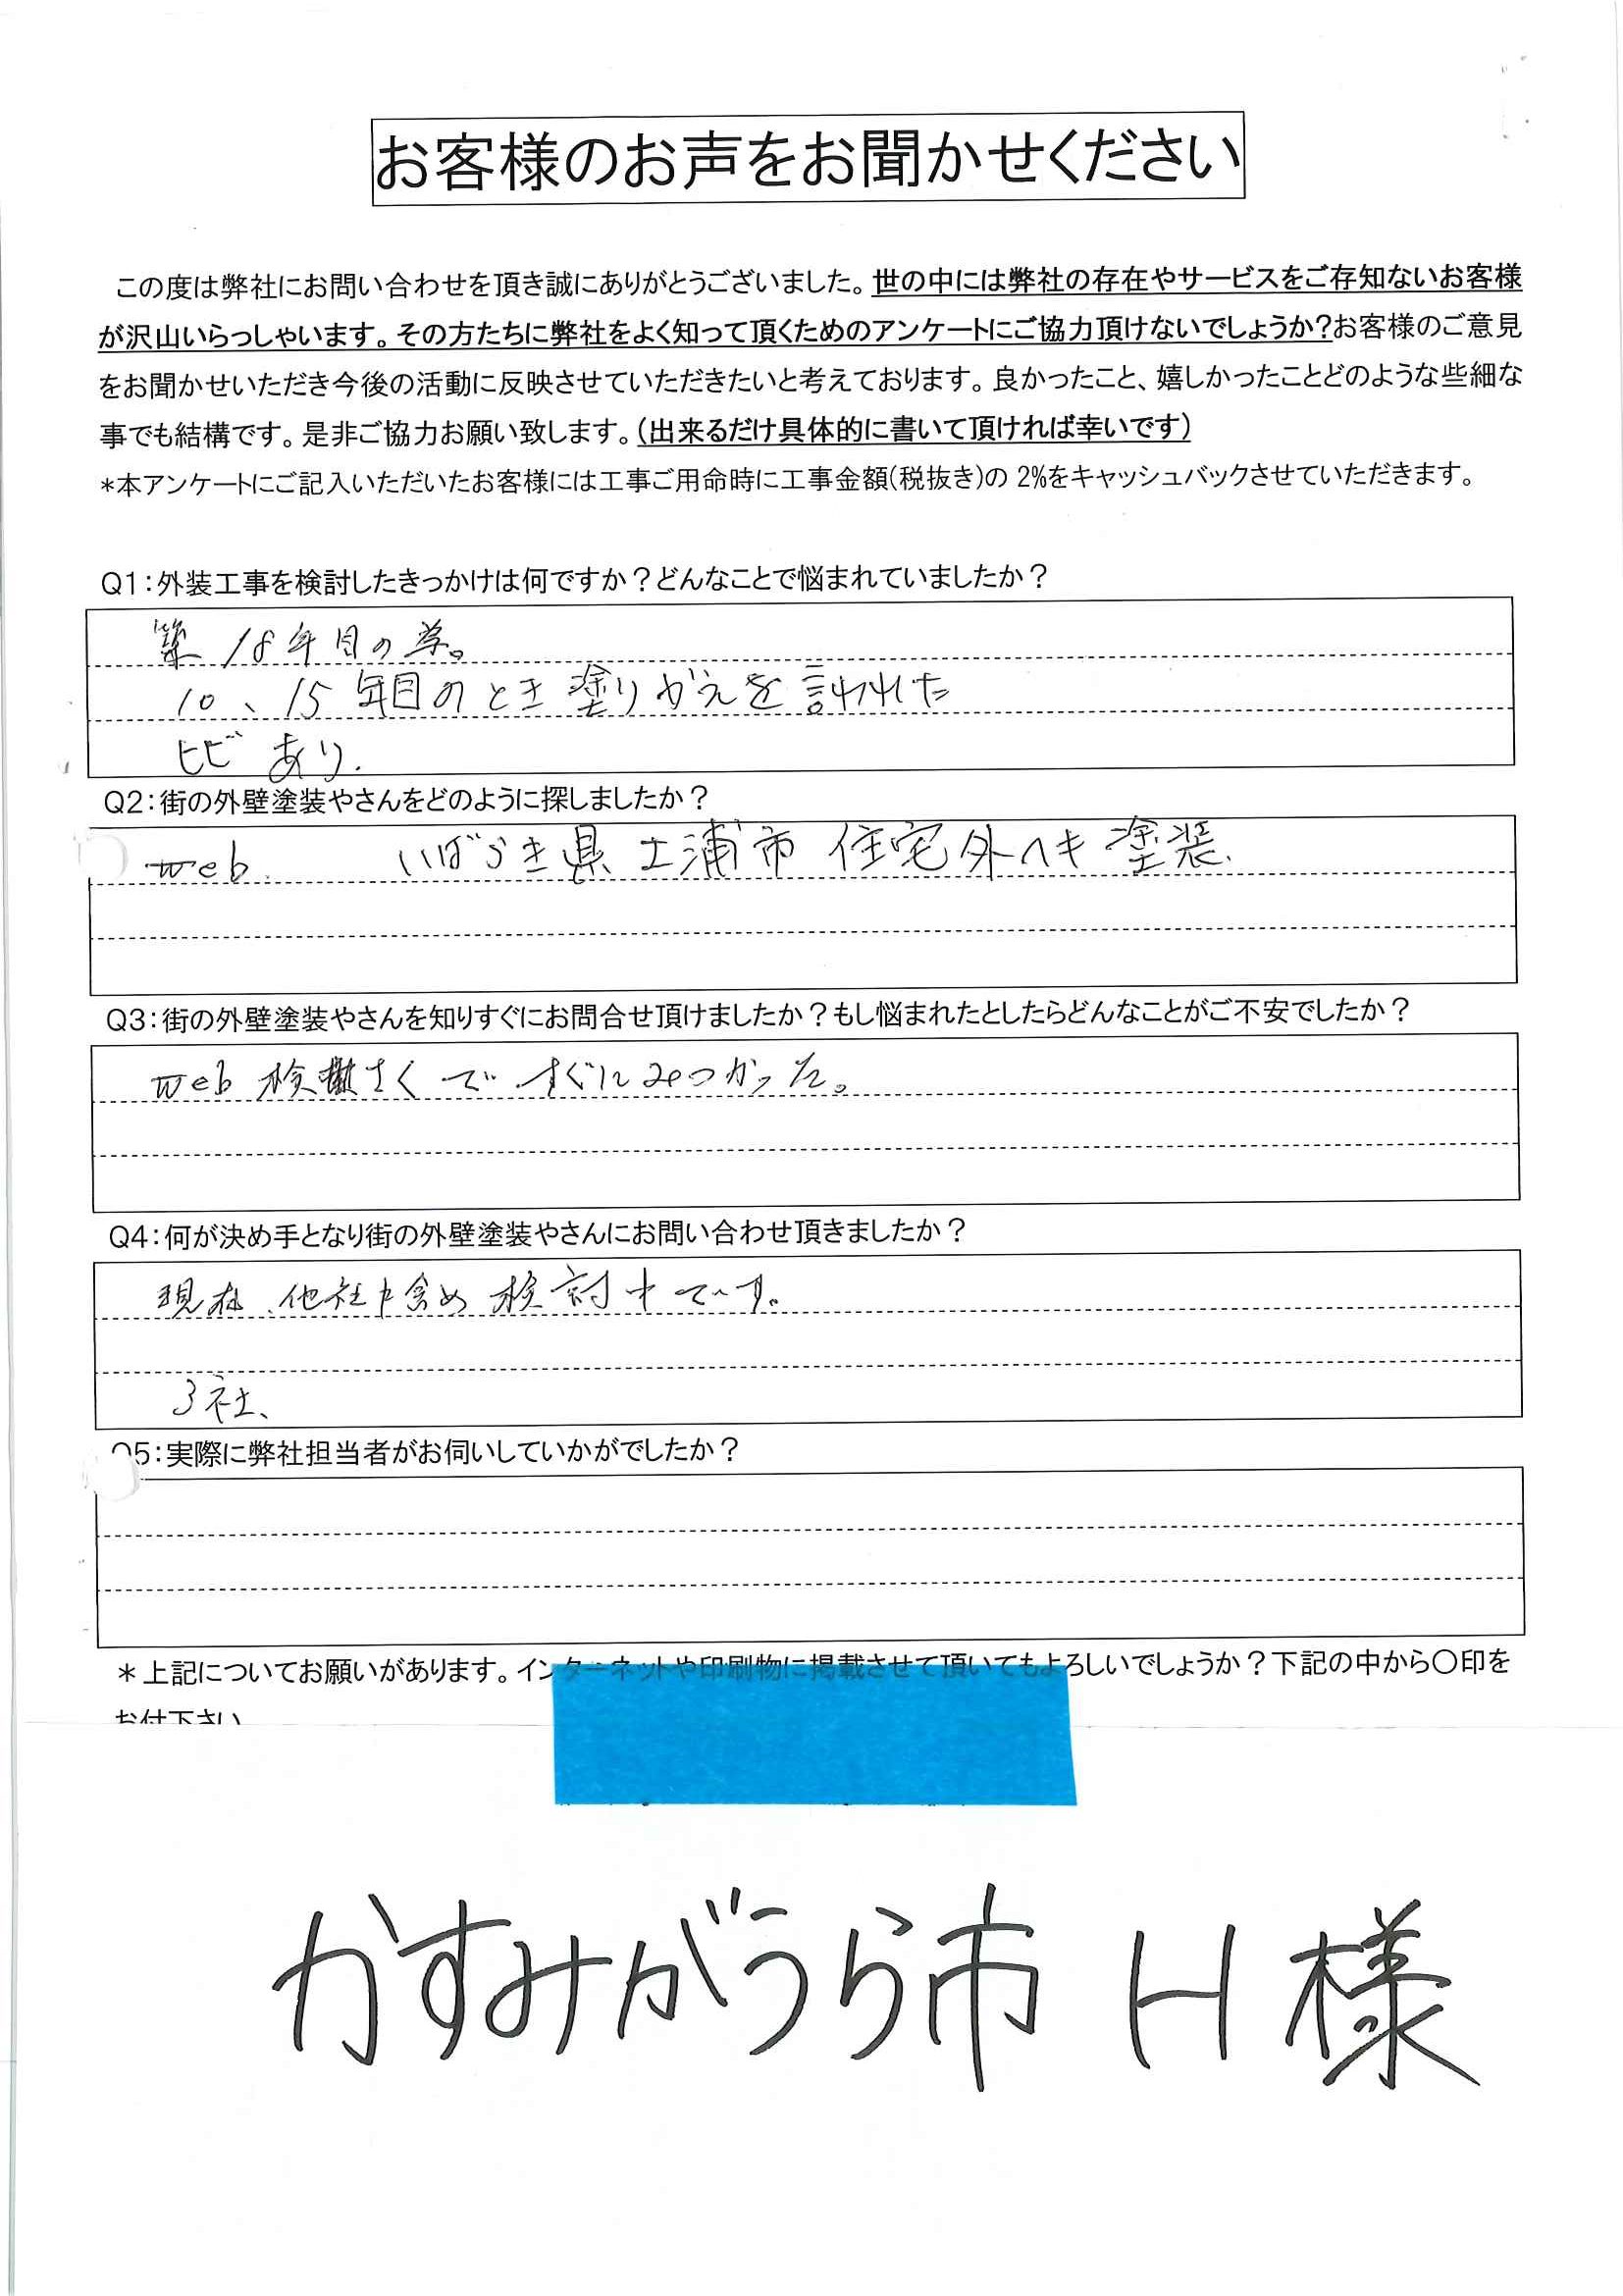 お客様のお声をお聞かせください
この度は弊社にお問い合わせを頂き誠にありがとうございました。世の中には弊社の存在やサービスをご存知ないお客様
が沢山いらっしゃいます。その方たちに弊社をよく知って頂くためのアンケートにご協力頂けないでしょうか?お客様のご意見
をお聞かせいただき今後の活動に反映させていただきたいと考えております。良かったこと、嬉しかったことどのような些細な
事でも結構です。是非ご協力お願い致します。(出来るだけ具体的に書いて頂ければ幸いです)
*本アンケートにご記入いただいたお客様には工事ご用命時に工事金額(税抜き)の 2%をキャッシュバックさせていただきます。
Q1:外装工事を検討したきっかけは何ですか?どんなことで悩まれていましたか?
築18年目の
10、15年目のとき塗りがえを言われた
ヒビあり.
Q2:街の外壁塗装やさんをどのように探しましたか?
web. いばらき県土浦市 住宅外ヘキ塗装.
Q3:街の外壁塗装やさんを知りすぐにお問合せ頂けましたか?もし悩まれたとしたらどんなことがご不安でしたか?
web 検さくで、すぐにみつかった。
Q4:何が決め手となり街の外壁塗装やさんにお問い合わせ頂きましたか?
現在、他社も含め検討中です。
3社、
Q5:実際に弊社担当者がお伺いしていかがでしたか?
*上記についてお願いがあります。インターネットや印刷物に掲載させて頂いてもよろしいでしょうか?下記の中から○印を
お付下さい
かすみがうら市 H様